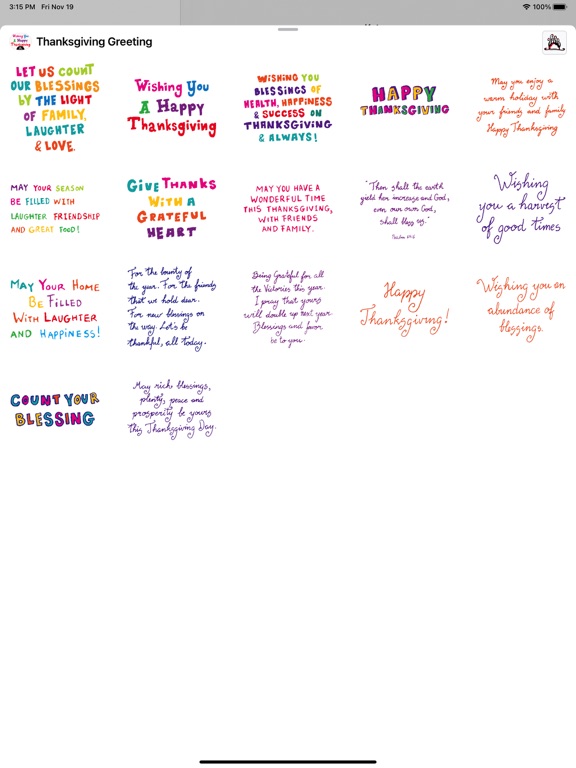 3:15 PM Fri Nov 19
100%
Wishing You
A Happy
Thanksgiving
Thanksgiving Greeting
LET US COUNT
OUR BLESSINGS
BY THE LIGHT
OF FAMILY,
LAUGHTER
& LOVE.
Wishing You
A Happy
Thanksgiving
WISHING YOU
BLESSINGS OF
HEALTH, HAPPINESS
& SUCCESS ON
THANKSGIVING
& ALWAYS!
HAPPY
THANKSGIVING
May you enjoy a
warm holiday with
your friends and family
Happy Thanksgiving
MAY YOUR SEASON
BE FILLED WITH
LAUGHTER FRIENDSHIP
AND GREAT FOOD!
GIVE THANKS
WITH A
GRATEFUL
HEART
MAY YOU HAVE A
WONDERFUL TIME
THIS THANKSGIVING,
WITH FRIENDS
AND FAMILY.
"Then shall the earth
yield her increase and God,
even our own God,
shall bless us."
Psalm
Wishing
you a harvest
of good times
MAY YOUR HOME
BE FILLED
WITH LAUGHTER
AND HAPPINESS!
For the bounty of
the year. For the friends
that we hold dear.
For new blessings on
the way. Let's be
thankful, all today.
Being Grateful for all
the Victories this year.
I pray that yours
will double up next year.
Blessings and favor
be to you.
Happy
Thanksgiving!
Wishing you an
abundance of
blessings.
COUNT YOUR
BLESSING
May rich blessings,
plenty, peace and
prosperity be yours
this Thanksgiving Day.